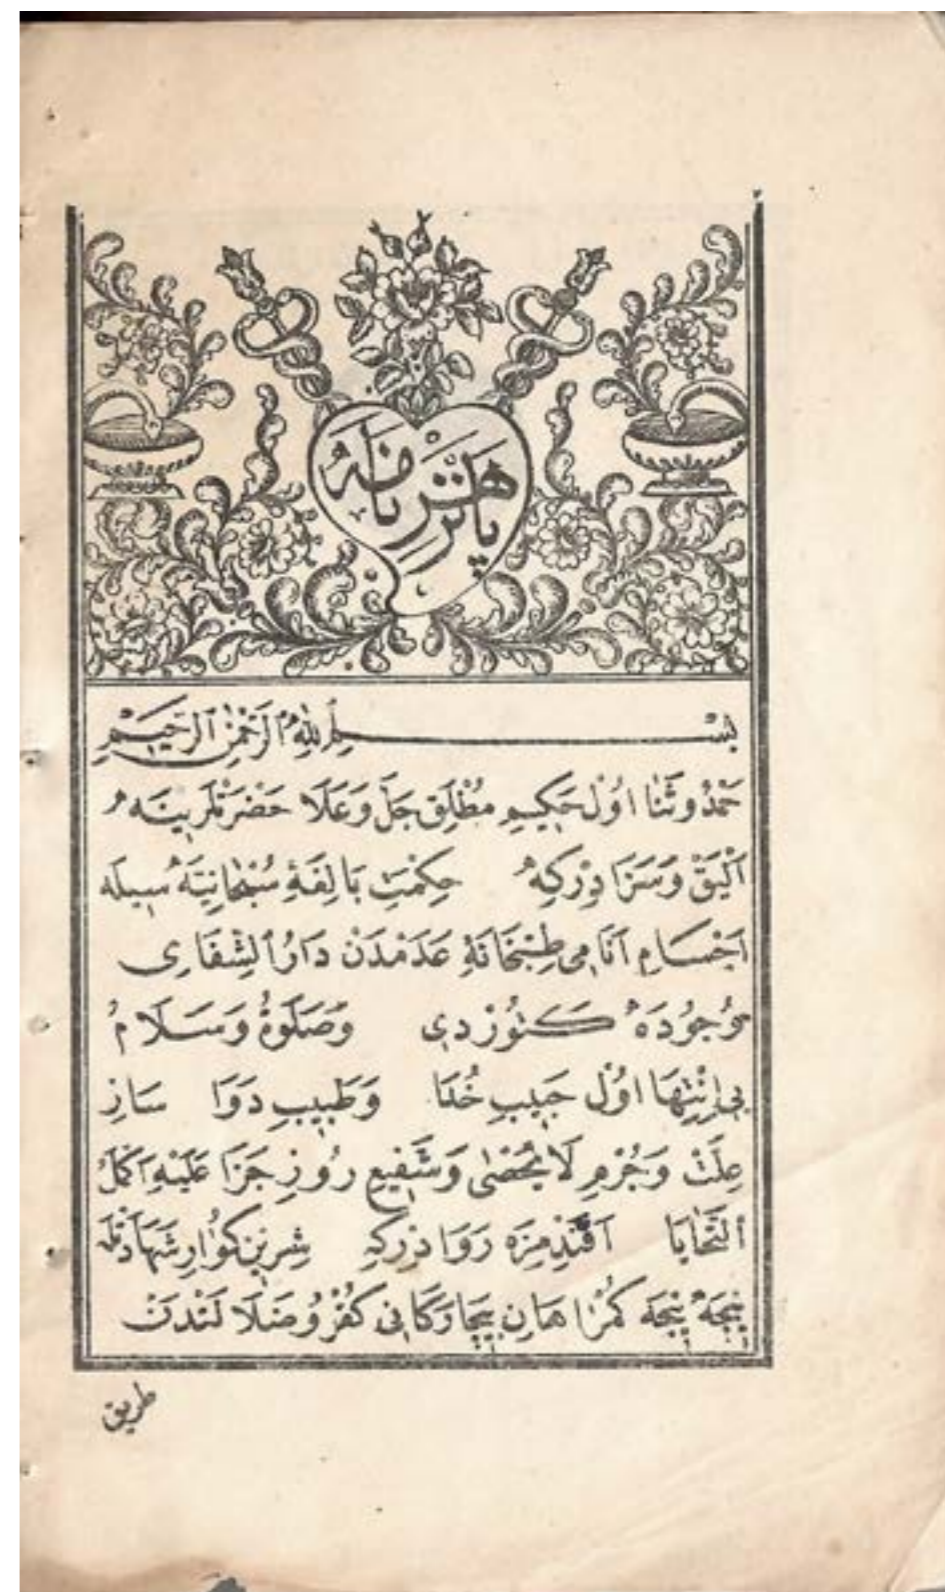 بسم الله الرحمن الرحيم
حَمْدُ وثَنَا اول حَكِيمِ مُطْلَق جَلَّ وَعَلَا حَضْرَتْلَرِينَه
اَلْيَقْ وَسَزَا دِرْكِه حِكْمَتِ بَالِغَهٔ سُبْحَانِيَّه سِيلَه
اَجْسَامِ اَنَامِى طِبْخَانَهٔ عَدَمْدَنْ دَارُ الشِّفَاىِ
وُجُودَه كَتُورْدِى وَصَلَوةُ وَسَلَامُ
بِى اِنْتِهَا اول حَبِيبِ خُدَا وَطَبِيبِ دَوَا سَازِ
عِلَتْ وَجُرْمِ لَا يُحْصٰى وَشَفِيعِ رُوزِ جَزَا عَلَيْهِ اَكْمَلُ
التَّحَايَا اَفَنْدِمِزَه رَوَا دِرْكِه شِرِينْ كُوَارِ شَهَادَتْلَه
نِيجَه نِيجَه كُمْرَاهَانِ بِيچَارَكَانِى كُفْرُ وضَلَالَتْدَنْ
طريق